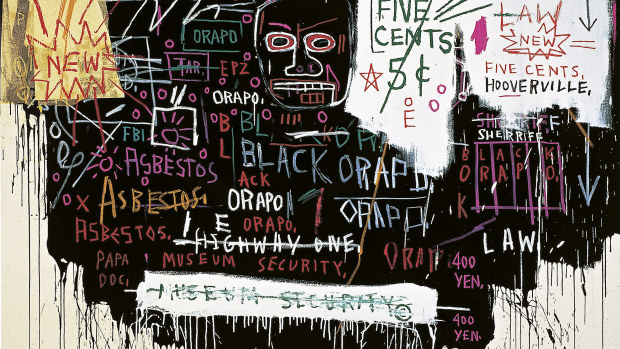 NEW
ORAPO
TAR.
EPZ
ORAPO,
FBI
ASBESTOS
ASBESTOS,
ASBESTOS,
PAPA DOC,
MUSEUM SECURITY,
MUSEUM SECURITY
BLACK ORAPO
ACK
ORAPO
ORAPO
ORAPO,
HIGHWAY ONE,
FIVE CENTS
5¢
LAW
NEW
FIVE CENTS,
HOOVERVILLE,
SHERIFF
SHERRIFF
LAW
400 YEN,
400 YEN.